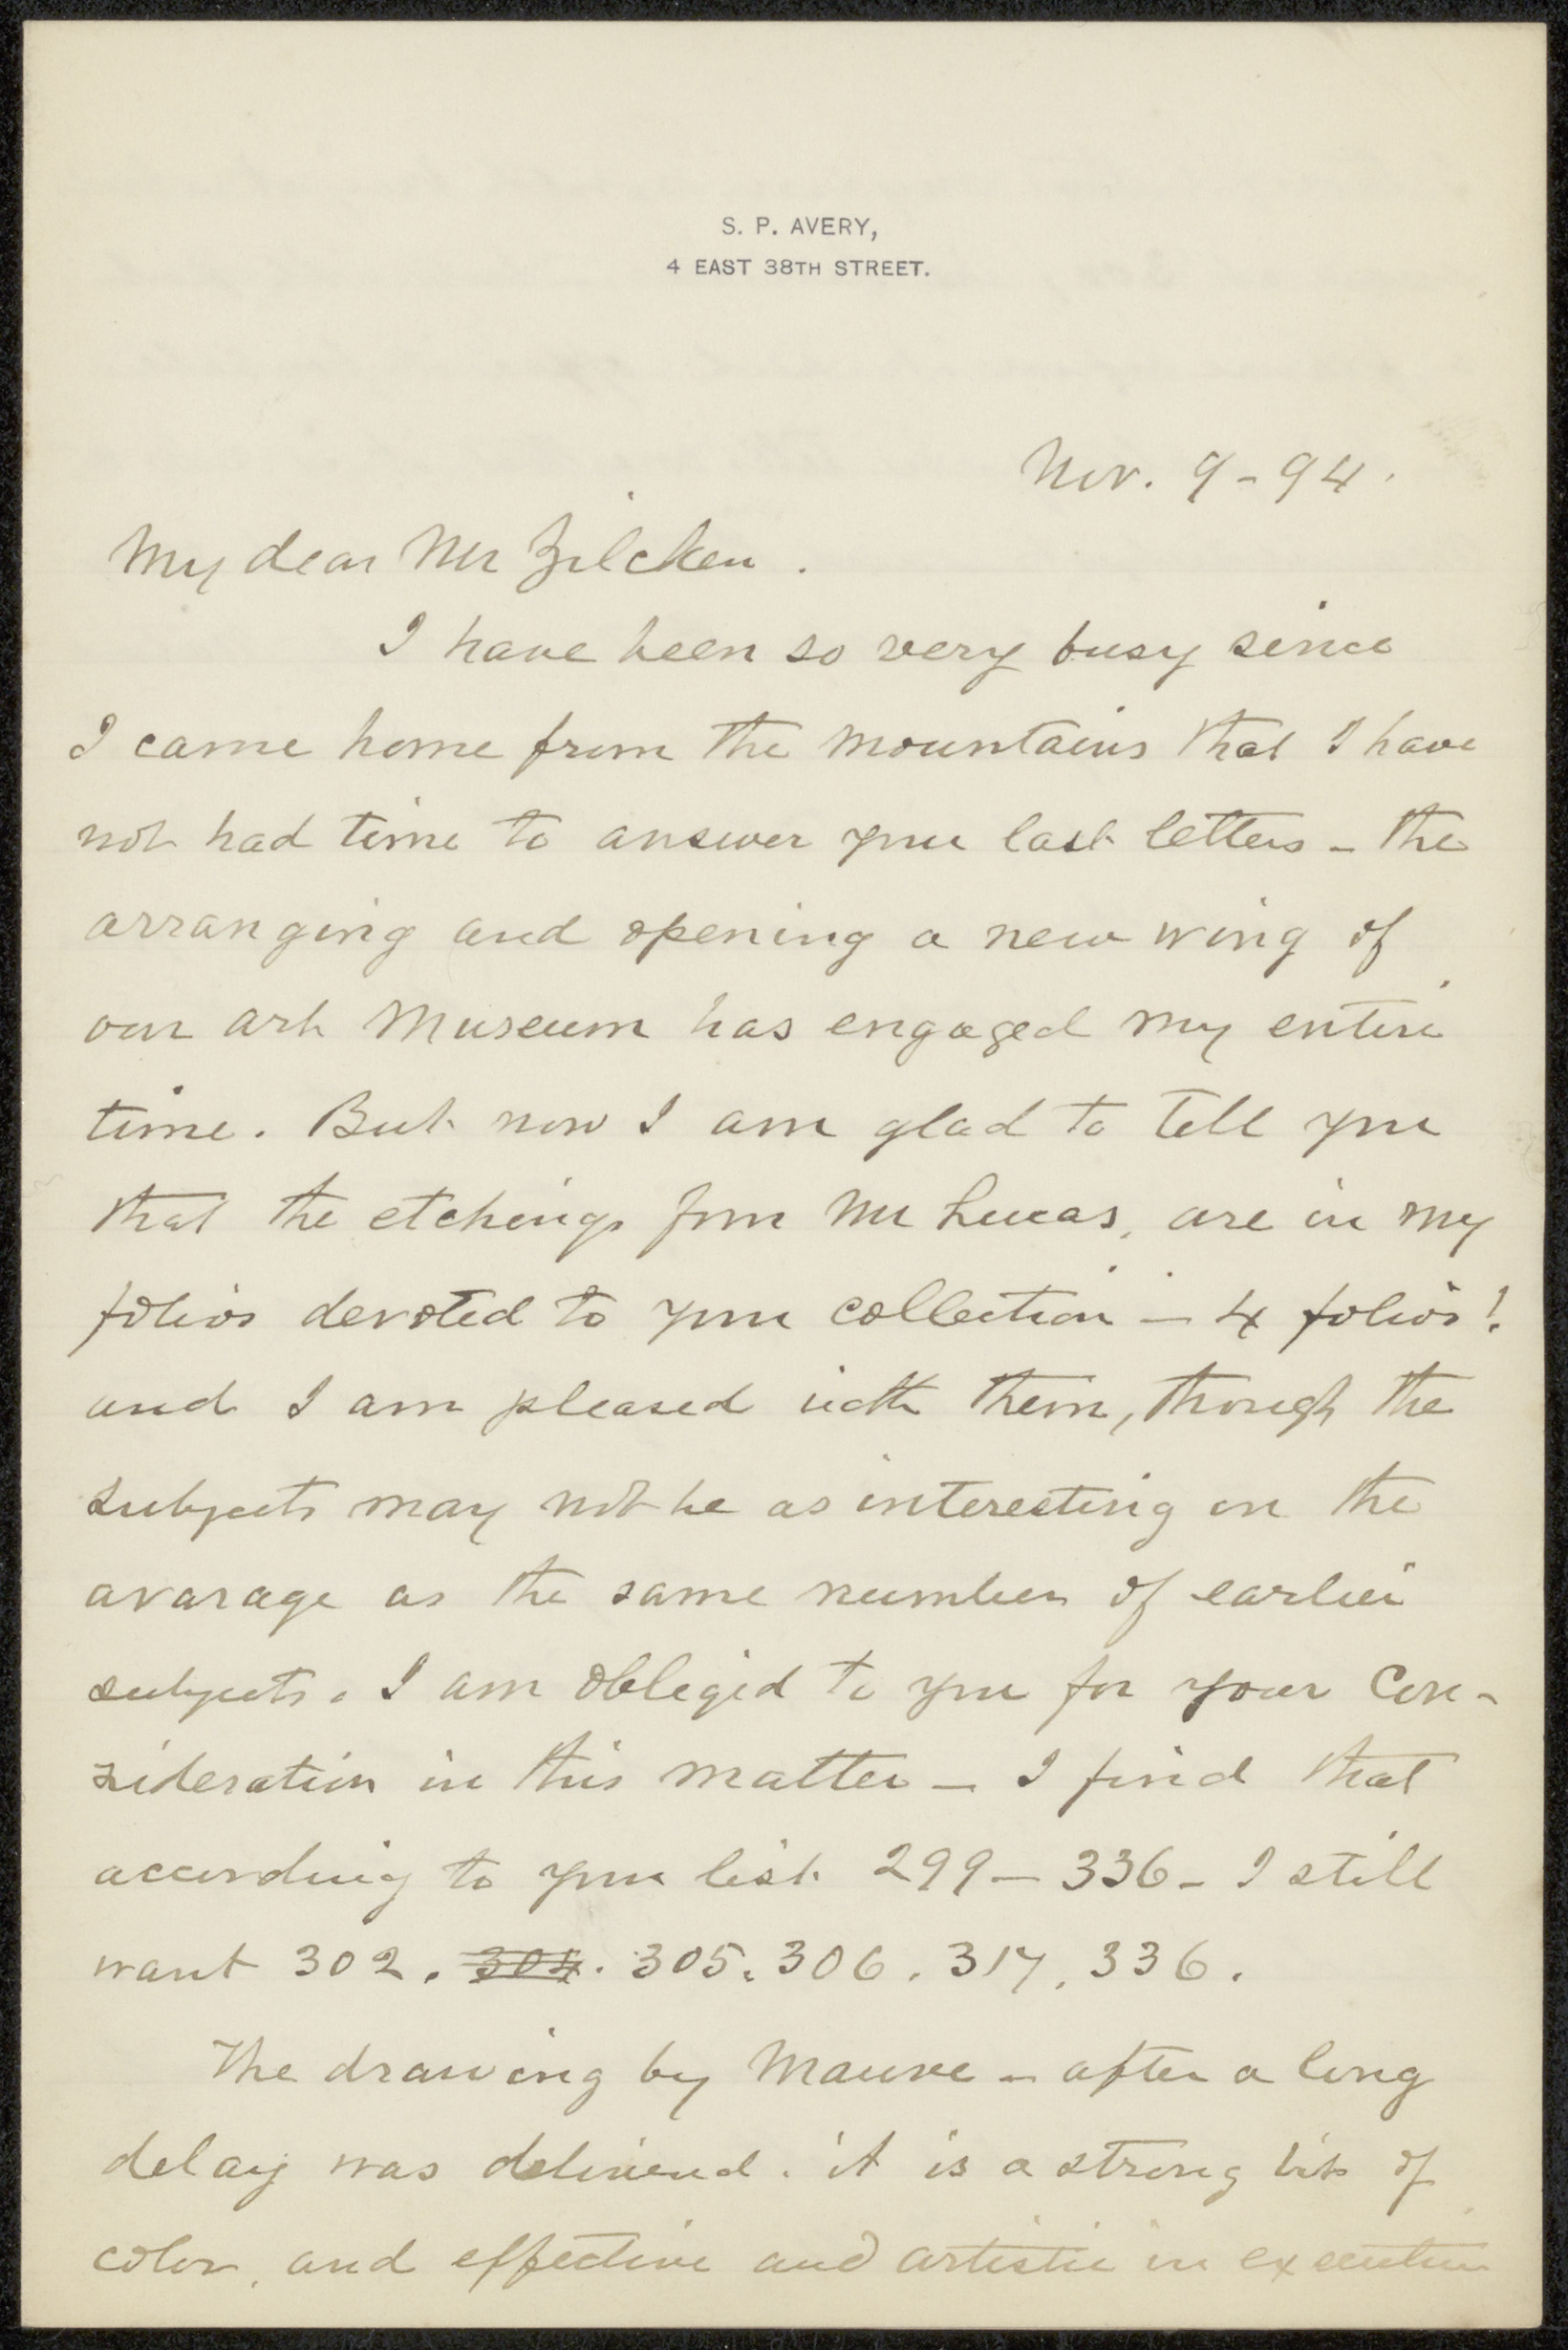 S. P. AVERY,
4 EAST 38TH STREET.
Nov. 9-94.
My dear Mr Zilcken.
I have been so very busy since
I came home from the mountains that I have
not had time to answer your last letters - the
arranging and opening a new wing of
our art Museum has engaged my entire
time. But now I am glad to tell you
that the etchings from Mr Lucas, are in my
folios devoted to your collection - 4 folios!
and I am pleased with them, though the
subjects may not be as interesting on the
avarage as the same number of earlier
subjects. I am obliged to you for your Con-
sideration in this matter - I find that
according to your list 299 - 336 - I still
want 302. 304. 305. 306. 317. 336.
The drawing by Mauve - after a long
delay was delivered. it is a strong bit of
color, and effective and artistic in execution